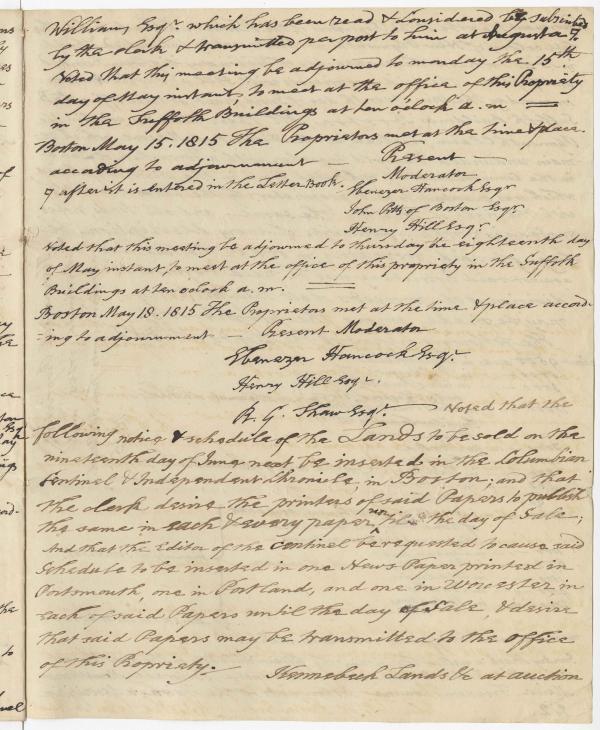 Williams Esqr. which has been read & considered by subscribed
by the clerk & transmitted per post to him at Augusta 7
Voted That this meeting be adjourned to monday the 15th
day of May instant, to meet at the office of this Propriety
in the Suffolk Buildings at ten oclock a.m
Boston May 15. 1815 The Proprietors met at the time & place.
according to adjournment — Present —
Moderator
7 after it is entered in the Letter Book. Ebenezer Hancock Esqr
John Pitts of Boston Esqr.
Henry Hill Esqr.
Voted that this meeting be adjourned to thursday the eighteenth day
of May instant, to meet at the office of this propriety in the Suffolk
Buildings at ten oclock a. m.
Boston May 18. 1815 The Proprietors met at the time & place accord-
=ing to adjournment — Present Moderator
Ebenezer Hancock Esqr.
Henry Hill Esqr.
R. G. Shaw Esqr. — Voted that the
following notice & schedule of the Lands to be sold on the
nineteenth day of June next be inserted in the Columbian
Sentinel & Independent Chronicle, in Boston; and that
the clerk desire the printers of said Papers to publish
the same in each & every paper, until the day of Sale;
And that the Editor of the centinel be requested to cause said
Schedule to be inserted in one News Paper printed in
Portsmouth, one in Portland, and one in Worcester in
each of said Papers until the day of Sale, & desire
that said Papers may be transmitted to the office
of this Propriety.
Kennebeck Lands &c at auction